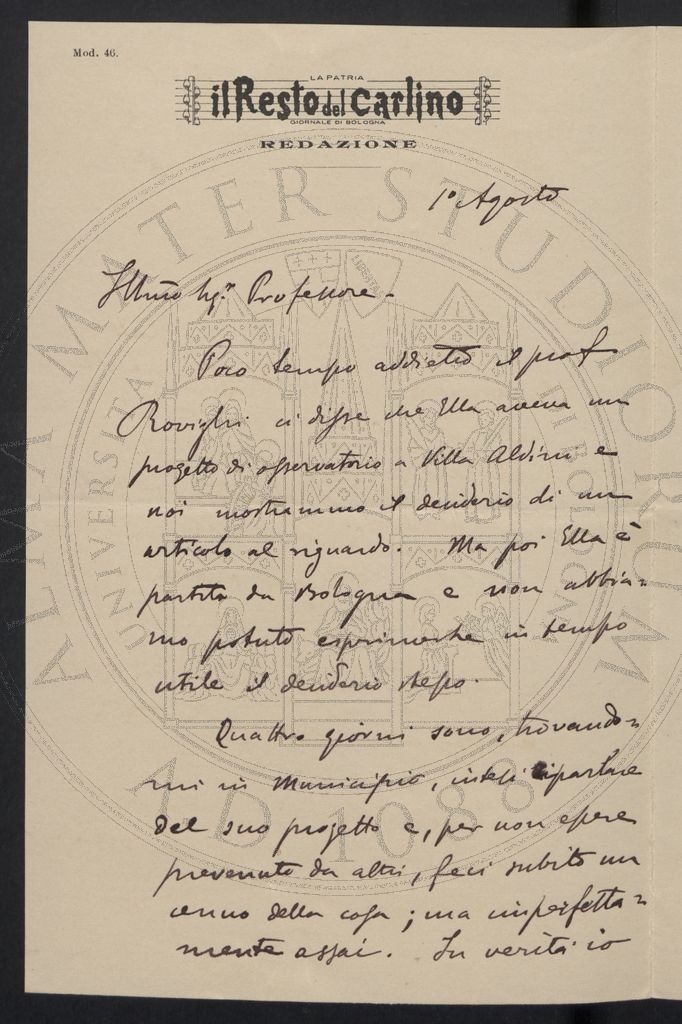 Mod. 46.
LA PATRIA
il Resto del Carlino
GIORNALE DI BOLOGNA
REDAZIONE
1º Agosto
Illmo Sgr. Professore -
Poco tempo addietro il prof
Rovighi ci disse che Ella aveva un
progetto di osservatorio a Villa Aldini e
noi mostrammo il desiderio di un
articolo al riguardo. Ma poi Ella è
partita da Bologna e non abbia=
mo potuto esprimerle in tempo
utile il desiderio stesso.
Quattro giorni sono, trovando=
mi in Municipio, intesi riparlare
del suo progetto e, per non essere
prevenuto da altri, feci subito un
cenno della cosa; ma imperfetta=
mente assai. In verità io
ALMA MATER STUDIORUM
UNIVERSITA
A.D. 1088